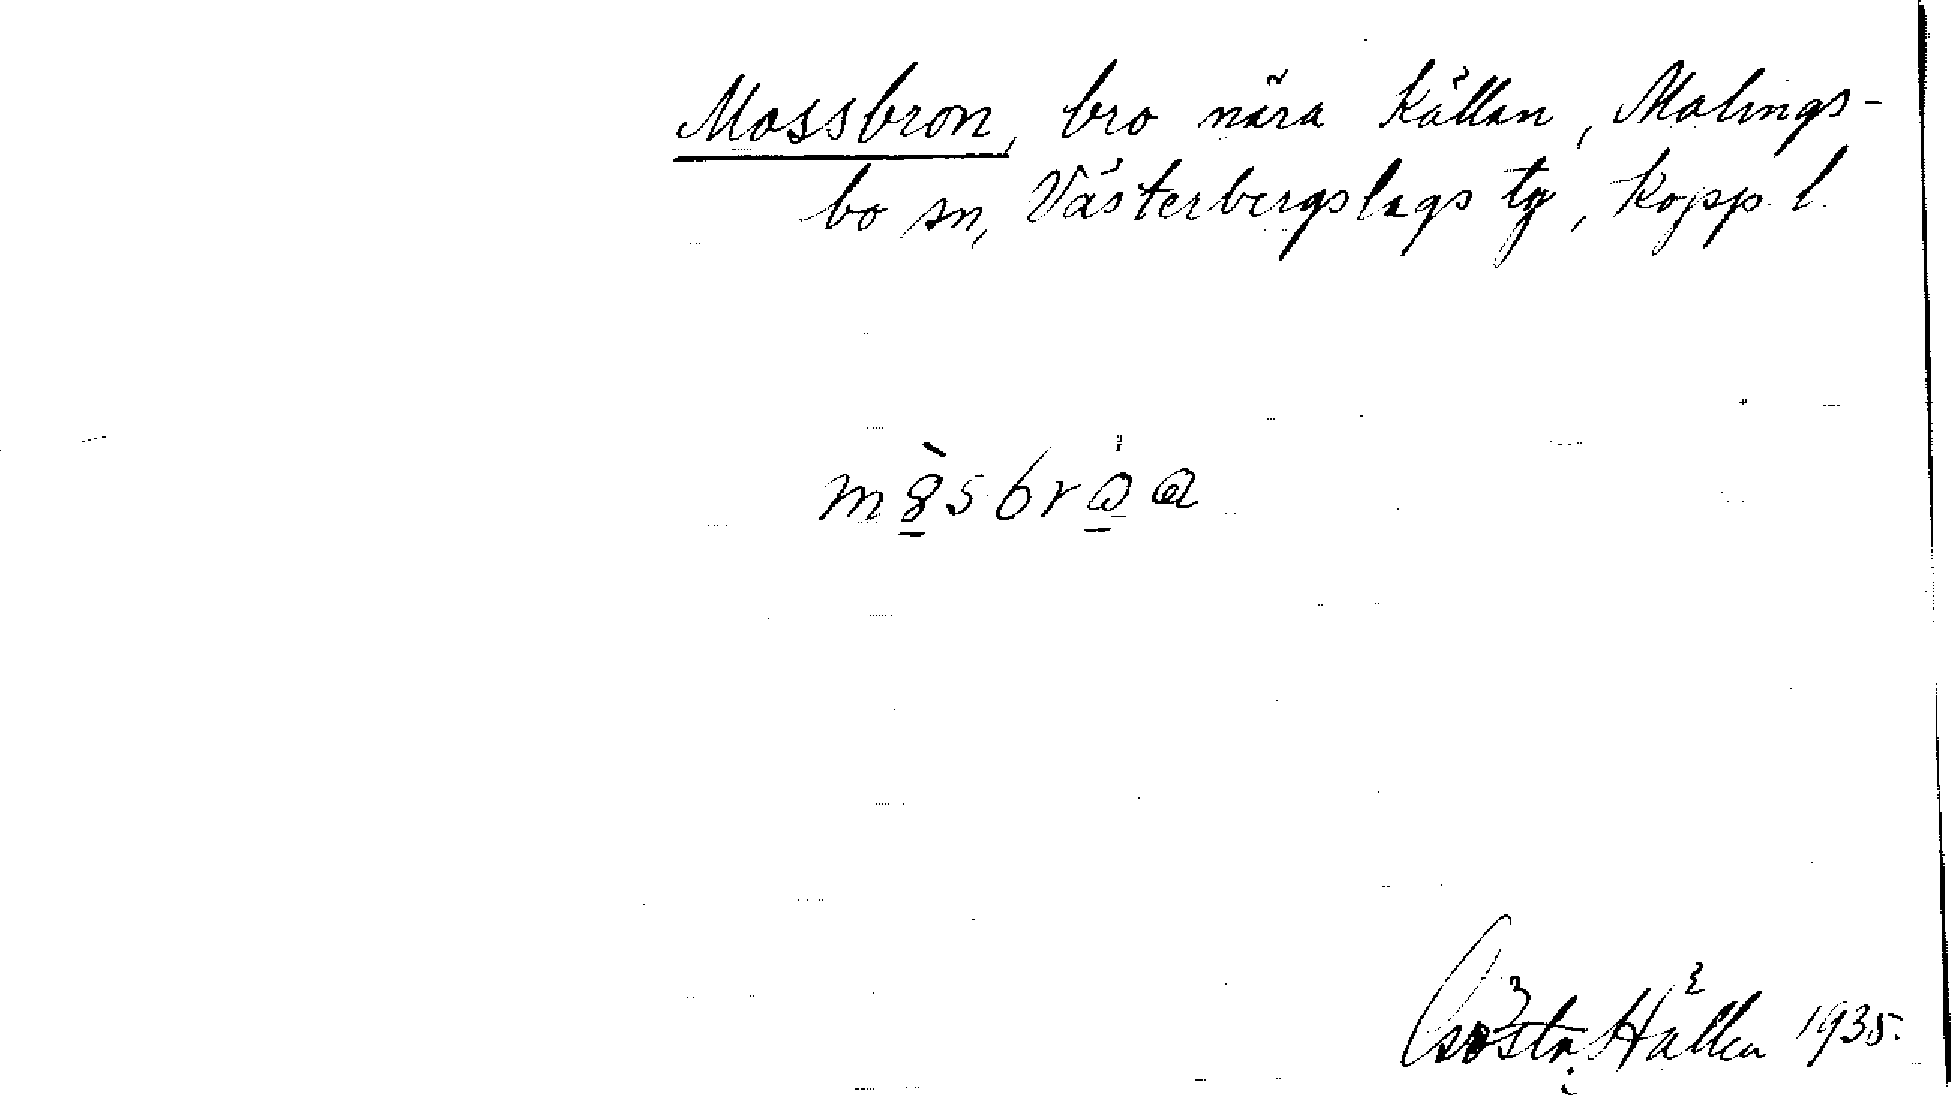 Mossbron, bro nära Källan, Malings-
bo sn, Västerbergslags tg, Kopp. l.
Gösta Hällen 1935.